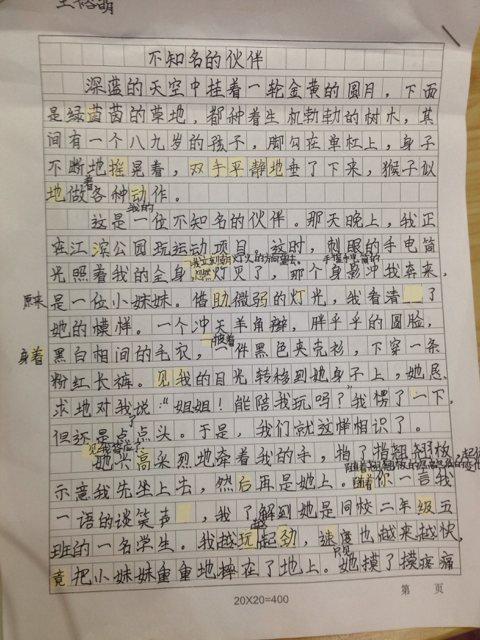 不知名的伙伴
深蓝的天空中挂着一轮金黄的圆月，下面
是绿茵茵的草地，都种着生机勃勃的树木，其
间有一个八九岁的孩子，脚勾在单杠上，身子
不断地摇晃着，双手平静地垂了下来，猴子似
地做着各种动作。
这是我的一位不知名的伙伴。那天晚上，我正
在江滨公园玩运动项目。这时，刺眼的手电筒
光照着我的全身，灯灭了，那个身影冲我奔来，
原来是一位小妹妹。借助微弱的灯光，我看清了
她的模样。一个冲天羊角辫，胖乎乎的圆脸，
身着黑白相间的毛衣，披着一件黑色夹克衫，下穿一条
粉红长裤。见我的目光转移到她身子上，她恳
求地对我说：“姐姐！能陪我玩吗？”我愣了一下，
但还是点点头。于是，我们就这样相识了。
她兴高采烈地牵着我的手，指了指翘翘板
示意我先坐上去，然后再是她上。你一言我
一语的谈笑声，我了解到她是同校二年级五
班的一名学生。我越玩越起劲，速度也越来越快，
竟把小妹妹重重地摔在了地上。只见她摸了摸疼痛
第 页
20X20=400